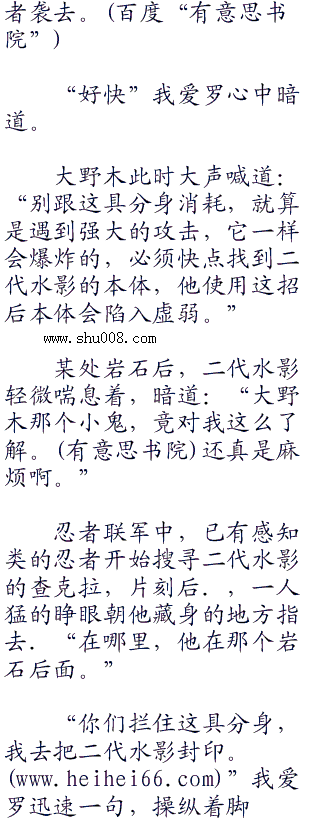 者袭去。(百度“有意思书
院”)
“好快”我爱罗心中暗
道。
大野木此时大声喊道：
“别跟这具分身消耗，就算
是遇到强大的攻击，它一样
会爆炸的，必须快点找到二
代水影的本体，他使用这招
后本体会陷入虚弱。”
www.shu008.com
某处岩石后，二代水影
轻微喘息着，暗道：“大野
木那个小鬼，竟对我这么了
解。(有意思书院)还真是麻
烦啊。”
忍者联军中，已有感知
类的忍者开始搜寻二代水影
的查克拉，片刻后．，一人
猛的睁眼朝他藏身的地方指
去．“在哪里，他在那个岩
石后面。”
“你们拦住这具分身，
我去把二代水影封印。
(www.heihei66.com)”我爱
罗迅速一句，操纵着脚